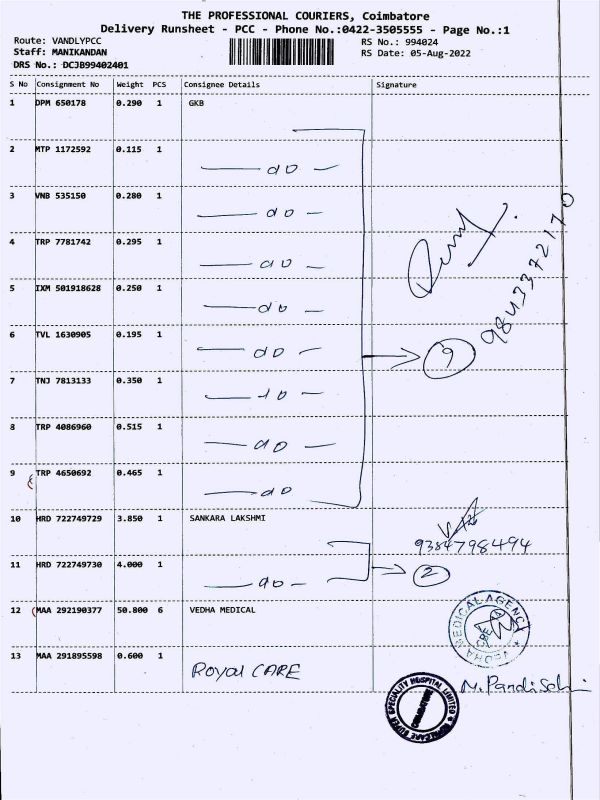 THE PROFESSIONAL COURIERS, Coimbatore
Delivery Runsheet - PCC - Phone No.:0422-3505555 - Page No.:1
Route: VANDLYPCC RS No.: 994024
Staff: MANIKANDAN RS Date: 05-Aug-2022
DRS No.: DCJB99402401
S No Consignment No Weight PCS Consignee Details Signature
1 DPM 650178 0.290 1 GKB
2 MTP 1172592 0.115 1
— do —
3 VNB 535150 0.280 1
— do —
4 TRP 7781742 0.295 1
— do —
5 IXM 501918628 0.250 1
— do —
9843372170
6 TVL 1630905 0.195 1
— do —
9
7 TNJ 7813133 0.350 1
— do —
8 TRP 4086960 0.515 1
— do —
9 TRP 4650692 0.465 1
— do
10 HRD 722749729 3.850 1 SANKARA LAKSHMI
9384798494
11 HRD 722749730 4.000 1
— do —
2
12 MAA 292190377 50.800 6 VEDHA MEDICAL
VEDHA MEDICAL AGENCY
CBE
13 MAA 291895598 0.600 1
Royal CARE
ROYALCARE SUPER SPECIALITY HOSPITAL LIMITED
COIMBATORE